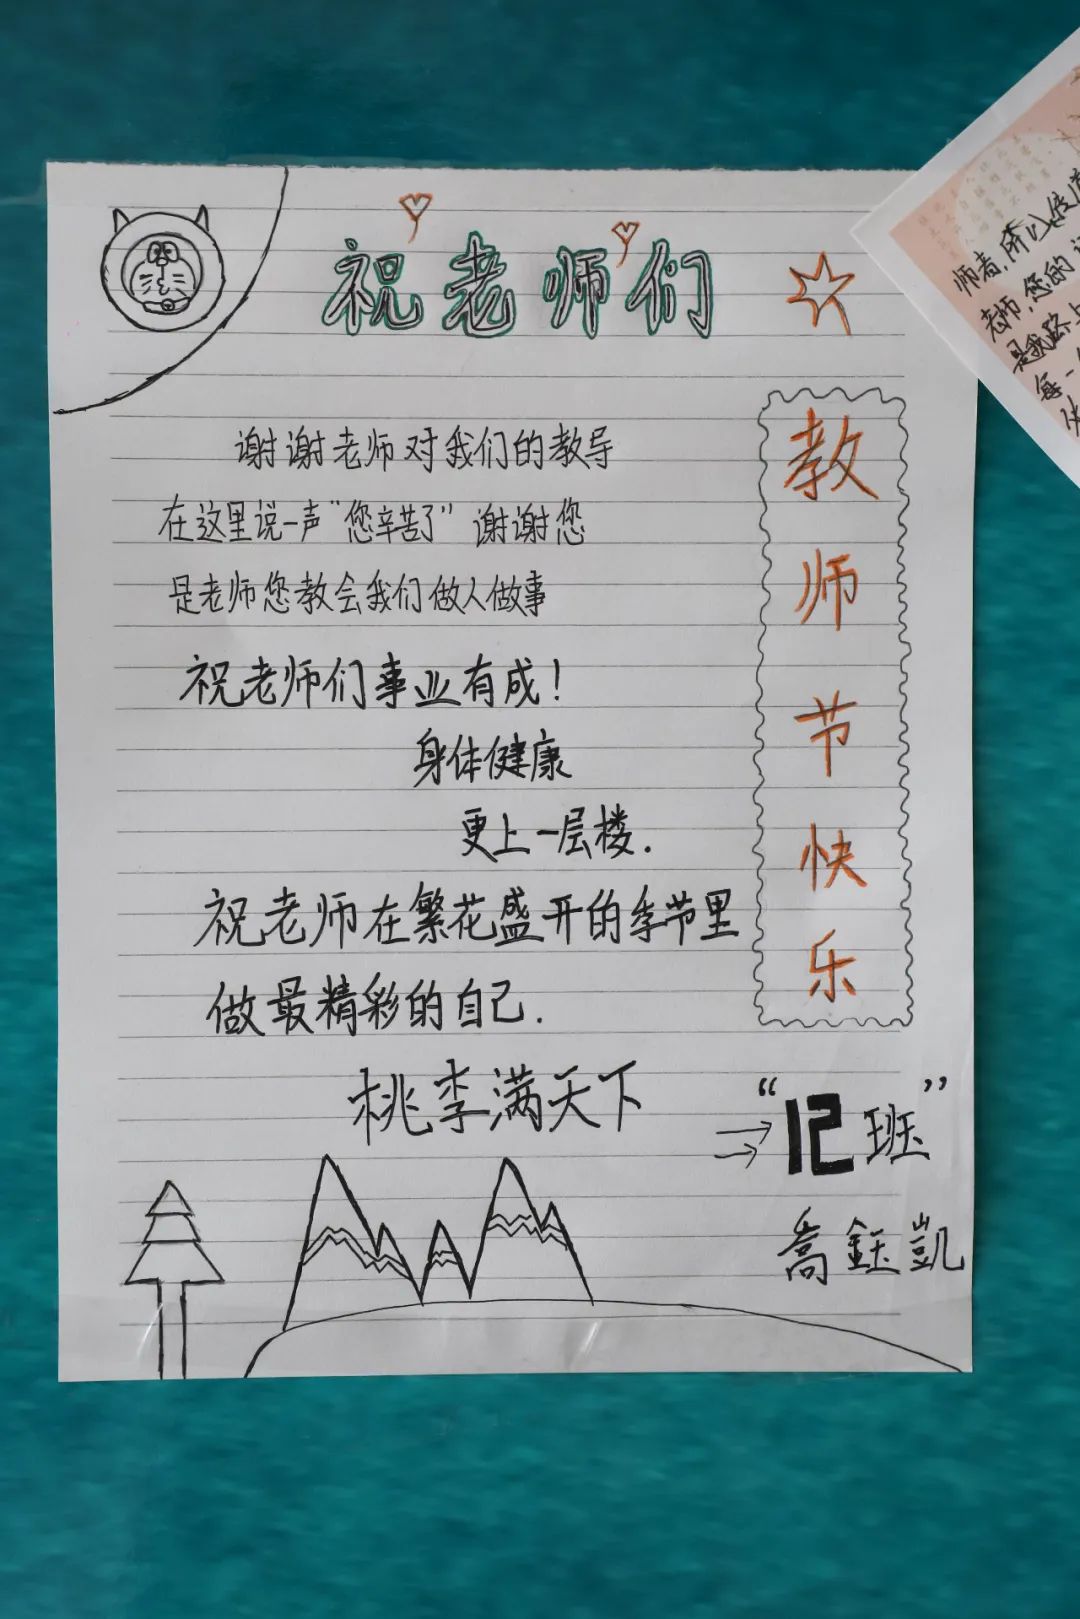 祝老师们
谢谢老师对我们的教导
在这里说一声“您辛苦了”谢谢您
是老师您教会我们做人做事
祝老师们事业有成！
身体健康
更上一层楼.
祝老师在繁花盛开的季节里
做最精彩的自己.
桃李满天下
教师节快乐
“12班”
喬鈺凱
师者,所以传道
老师,您的
是我路上
每一